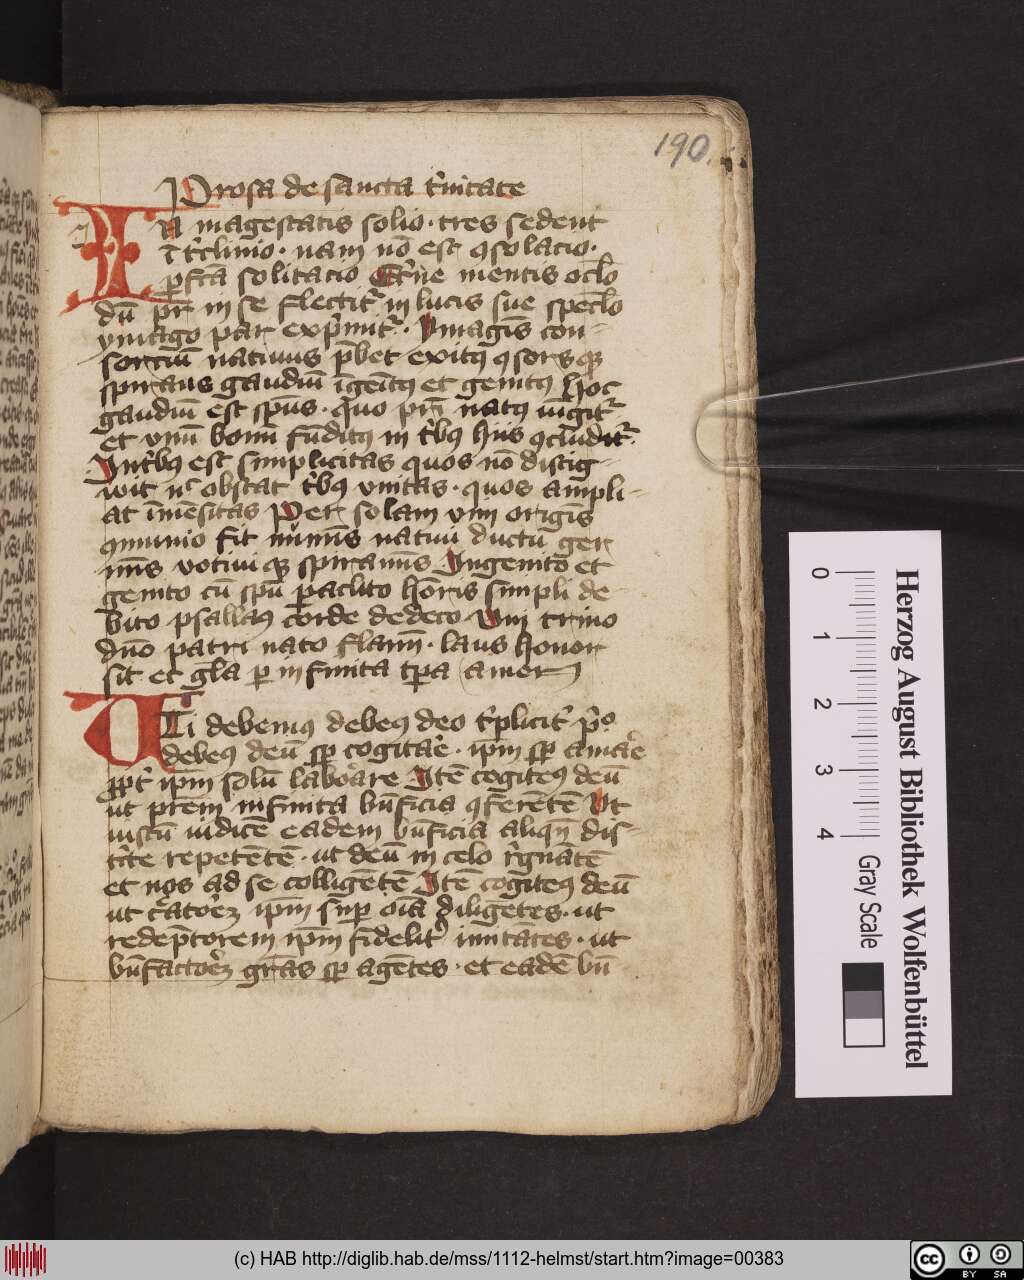 190.
Prosa de sancta t'nitate
In magestatis solio · tres sedent
ī t'clinio · nam nō est ꝯsolacio ·
ꝑfcā solitacio Et'ne mentis oclo
dū pr̄ in se flectit' in lucis sue spec̄lo
ymago par exp'mit' · Ymagīs con-
sorciū natiuus p̄bet exitꝰ ꝯsors qꝫ
spirans gaudiū īgēitꝰ et genitꝰ hoc
gaudiū est sp̄us · quo pr̄i natꝰ iūgit'
et vnū bonū fūditꝰ in t'bꝰ hiis ꝯcludit' ·
In t'bꝰ est simplicitas quos nō distig-
wit nͨ obstat t'bꝰ vnitas · quos ampli-
at īmēsitas Per solam vim origīs
ꝯmunio fit nūmīs natiui ductū ger
mīs votiui qꝫ spiramīs · Ingenito et
genito cū sp̄u paclito hōris simpli de-
bito psallamꝰ corde dedeco Vni trino
dn̄o patri nato flamī · laus honor
sit et gl̄a ꝑ infinita tp̄a amen
Uti debemꝰ debemꝰ deo t'plicit' p'o
debemꝰ deū sꝑ cogitar̄e · ip̄m sꝑ amar̄e
ꝓpt' ip̄m solū laborare Itē cogitemꝰ deū
ut pr̄em infinita bn̄ficia ꝯferētē Ut
iustū iudicē eadem bn̄ficia aliqn̄ dis-
t'cte repetētē · ut deū in celo r'gnātē
et nos ad se colligētē Itē cogitemꝰ deū
ut c'atorēꝫ ip̄m suꝑ oīa diligētes · ut
redēptorem ip̄m fidelit' imitātes · ut
bn̄factorēꝫ gr̄as sꝑ agētes · et eadē bn̄
Herzog August Bibliothek Wolfenbüttel
0 1 2 3 4
Gray Scale
(c) HAB http://diglib.hab.de/mss/1112-helmst/start.htm?image=00383
cc BY SA